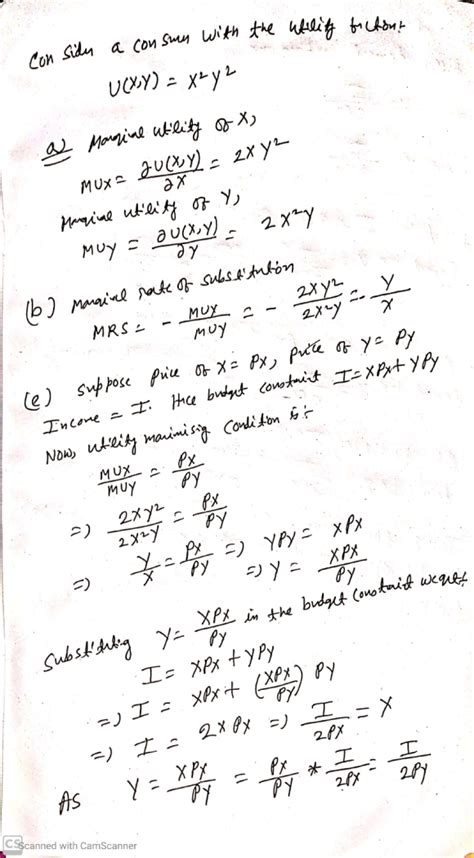 Consider a consumer with the utility function:
U(X,Y) = X²Y²
a) Marginal utility of X,
MUx = ∂U(X,Y)/∂X = 2XY²
Marginal utility of Y,
MUy = ∂U(X,Y)/∂Y = 2X²Y
(b) Marginal rate of substitution
MRS = - MUX/MUY = - 2XY²/2X²Y = - Y/X
(c) suppose price of X = Px, price of Y = Py
Income = I. Hence budget constraint I = XPx + YPy
Now, utility maximising condition is :-
MUX/MUY = Px/Py
=> 2XY²/2X²Y = Px/Py
=> Y/X = Px/Py => YPy = XPx
=> Y = XPx/Py
Substituting Y = XPx/Py in the budget constraint we get,
I = XPx + YPy
=> I = XPx + (XPx/Py) Py
=> I = 2XPx => I/2Px = X
As Y = XPx/Py = Px/Py * I/2Px = I/2Py
CS Scanned with CamScanner